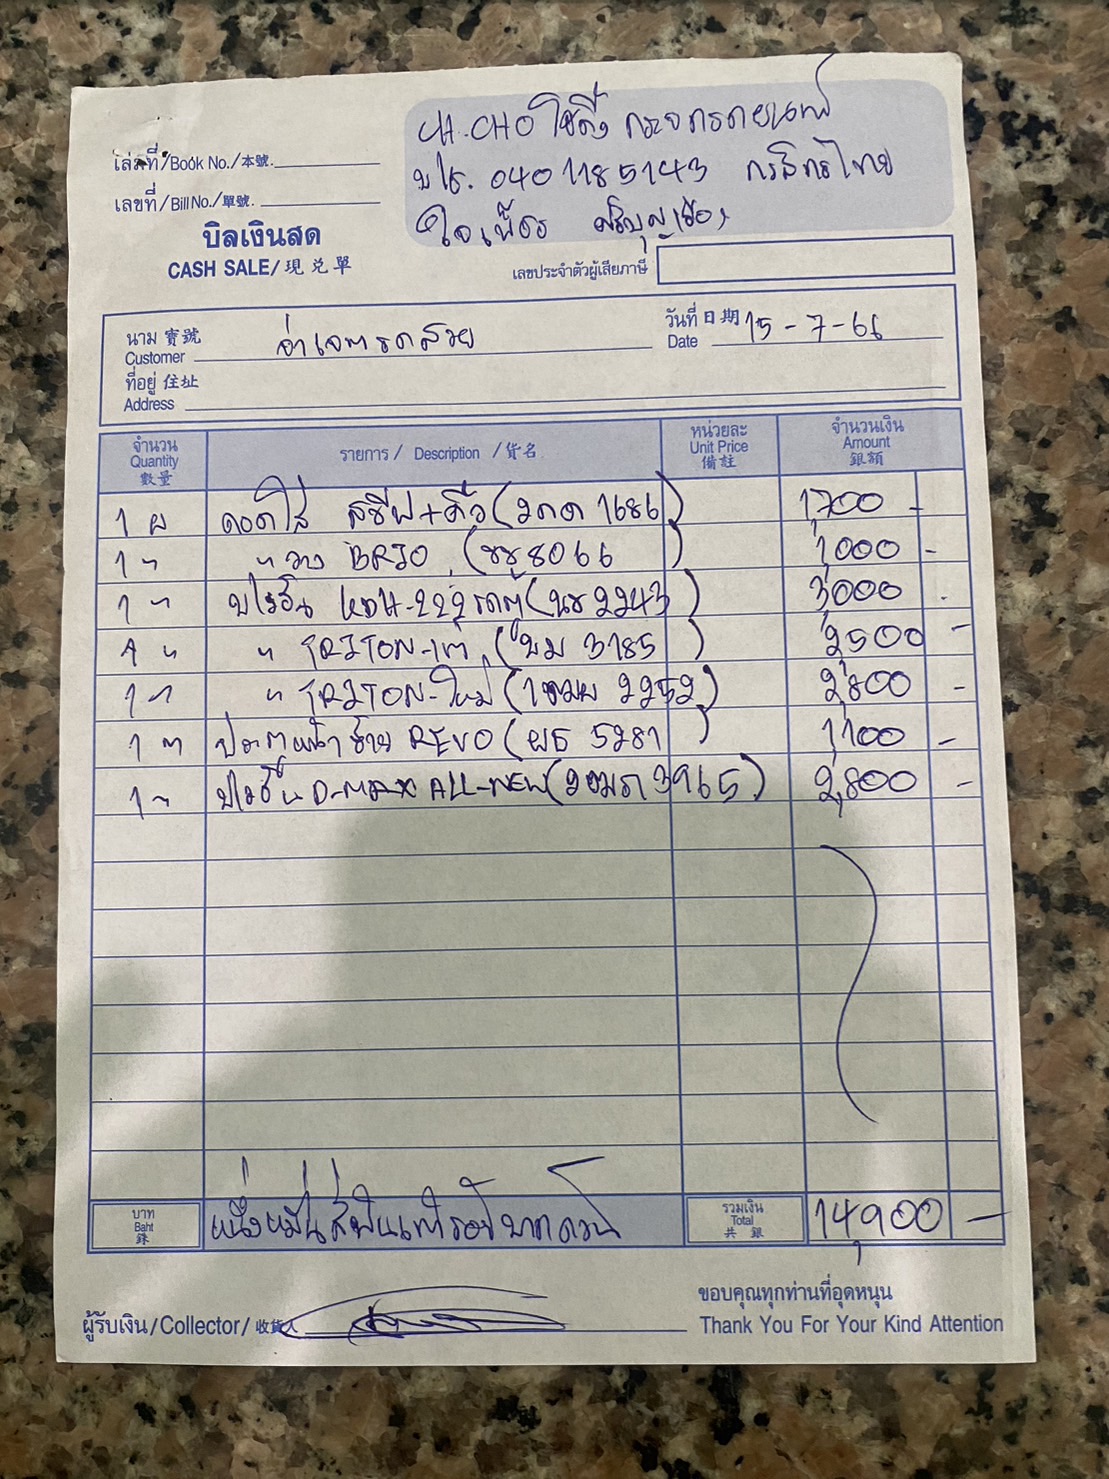 CH.CHO โชติ กระจกรถยนต์
เล่มที่/Book No./本號.
บ/ช. 0401185143 กสิกรไทย
เลขที่/Bill No./單號.
ใจเพ็ชร ศรีบุญเรือง
บิลเงินสด
CASH SALE/現兌單
เลขประจำตัวผู้เสียภาษี
นาม 寶號
Customer
จ่าเจตรถสวย
วันที่ 日期
Date
15-7-66
ที่อยู่ 住址
Address
จำนวน
Quantity
數量
รายการ / Description / 貨名
หน่วยละ
Unit Price
備註
จำนวนเงิน
Amount
銀額
1 ผ ถอดใส่ + คิ้ว ( 1686) 1,700 -
1 " " BRIO ( 8066) 1,000 -
1 " KDH-222 รถตู้ (นข 2243) 3,000 -
1 " " TRITON-เก่า ( 3185) 2,500 -
1 " " TRITON-ใหม่ ( 2252) 2,800 -
1 " ประตูหน้าซ้าย REVO (ผธ 5281) 1,100 -
1 " D-MAX ALL-NEW ( 3965) 2,800 -
บาท
Baht
銖
หนึ่งหมื่นสี่พันเก้าร้อยบาทถ้วน
รวมเงิน
Total
共 銀
14,900 -
ขอบคุณทุกท่านที่อุดหนุน
ผู้รับเงิน/Collector/收貨人
Thank You For Your Kind Attention